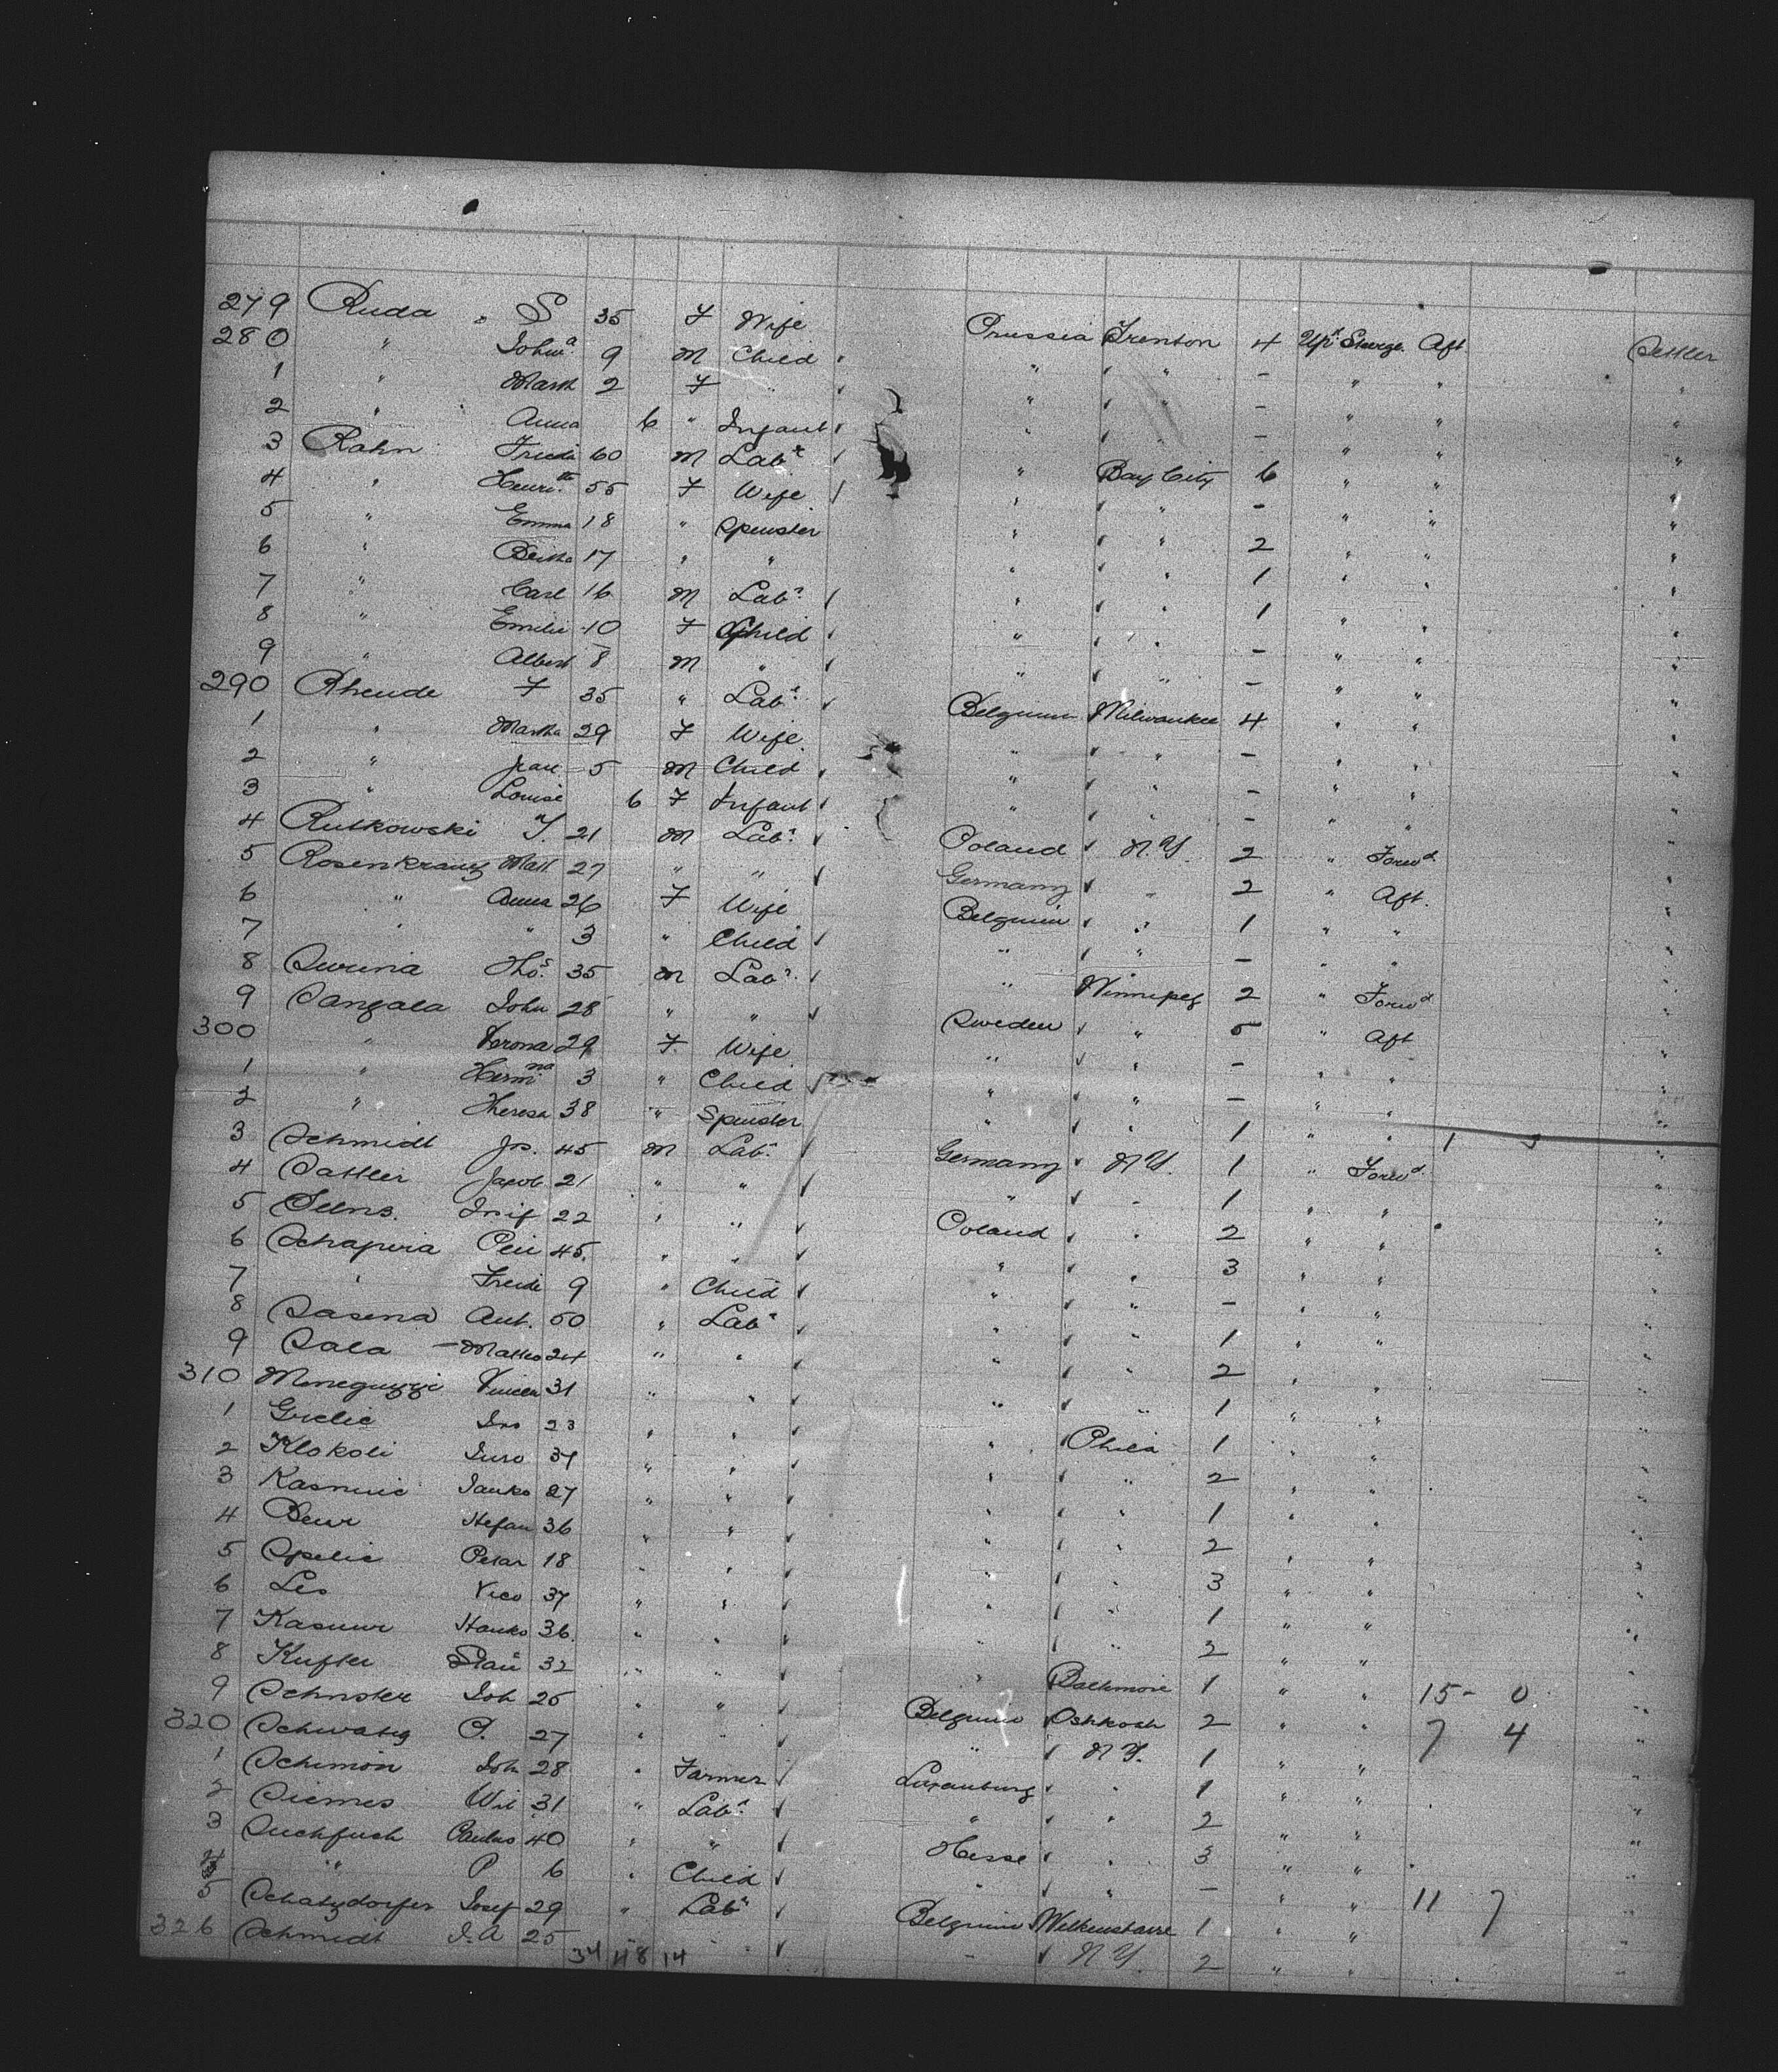 279 Ruda " S 35 F Wife Prussia Trenton 4 Upr Steerge. Aft Settler
280 " Johna 9 M Child " " " - " " "
1 " Marth 2 F " " " - " " "
2 " Anna 6 " Infant " " - " " "
3 Rahn Friedr 60 M Labr " Bay City 6 " " "
4 " Henritte 55 F Wife " " - " " "
5 " Emma 18 " Spinster " " 2 " " "
6 " Bertha 17 " " " " 1 " " "
7 " Carl 16 M Labr " " 1 " " "
8 " Emilie 10 F Child " " - " " "
9 " Albert 8 M " " " - " " "
290 Rheude F 35 " Labr Belgium Milwaukee 4 " " "
1 " Martha 29 F Wife " " - " " "
2 " Jean 5 M Child " " - " " "
3 " Louise 6 F Infant " " - " " "
4 Rutkowski T. 21 M Labr Poland N.Y. 2 " Forwd "
5 Rosenkranz Matt 27 " " Germany " 2 " Aft. "
6 " Anna 26 F Wife Belgium " 1 " " "
7 " " 3 " Child " " - " " "
8 Swina Thos. 35 M Labr " Winnipeg 2 " Forwd "
9 Sangala John 28 " " Sweden " 5 " Aft "
300 " Verona 29 F Wife " " - " " "
1 " Hermna 3 " Child " " - " " "
2 " Theresa 38 " Spinster " " 1 " " 1 5 "
3 Schmidt Jos. 45 M Labr Germany N.Y. 1 " Forwd. "
4 Sattler Jacob 21 " " " " 1 " " "
5 Selns. 22 " " Poland " 2 " " "
6 Schapira Peii 45. " " " " 3 " " "
7 " Freide 9 " Child " " - " " "
8 Sasena Ant. 50 " Labr " " 1 " " "
9 Sala Matteo 24 " " " " 2 " " "
310 Meneguzzi Vincen 31 " " " " 1 " " "
1 Grelic Ivo 23 " " " Phila 1 " " "
2 Klokoli Juro 37 " " " " 2 " " "
3 Kasnuic Janko 27 " " " " 1 " " "
4 Beur Stefan 36 " " " " 2 " " "
5 Spelic Petar 18 " " " " 3 " " "
6 Les Vico 37 " " " " 1 " " "
7 Kasuur Stanko 36 " " " " 2 " " "
8 Kufler 32 " " " Baltimore 1 " " 15 - 0 "
9 Schuster Joh 25 " " Belgium Oshkosh 2 " " 7 4 "
320 Schwatig P. 27 " " " N.Y. 1 " " "
1 Schimon Joh 28 " Farmer Luxemburg " 1 " " "
2 Siemes Wil 31 " Labr " " 2 " " "
3 Suchfuch Paulus 40 " " Hesse " 3 " " "
4 " P 6 " Child " " - " " 11 7 "
5 Schatzdorfer Josef 29 " Labr Belgium Welkensbarre 1 " " "
326 Schmidt J.A 25 " " N.Y. 2 " " "
34 11 8 14